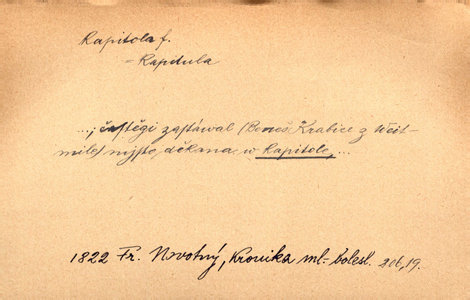 Kapitola f.
= Kapdula
...; častěgi zastáwal (Beneš Krabice z Weit-
mile) mjsto děkana w Kapitole, ...
1822 Fr. Novotný, Kronika ml.-bolesl. 206,19.